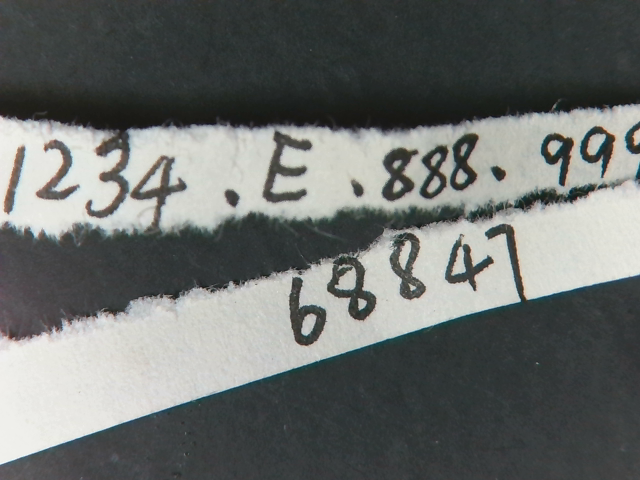 1234.E.888.999
68847